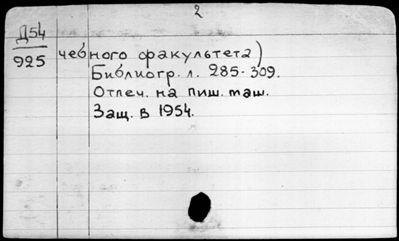 2
Д54
925
чебного факультета)
Библиогр. л. 285-309.
Отпеч. на пиш. маш.
Защ. в 1954.